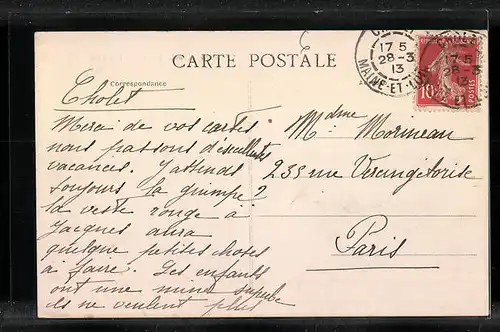 CARTE POSTALE
Correspondance
17 5
28-3
13
MAINE-ET-
17 5
28-3
13
10
POSTES
Cholet
Merci de vos cartes
nous passons d'excellentes
vacances. J'attends
toujours la grimpe?
la veste rouge à
Jacques aura
quelque petites choses
à faire. Les enfants
ont une mine superbe
ils ne veulent plus
Mdme Mormeau
233 rue Vercingétorise
Paris